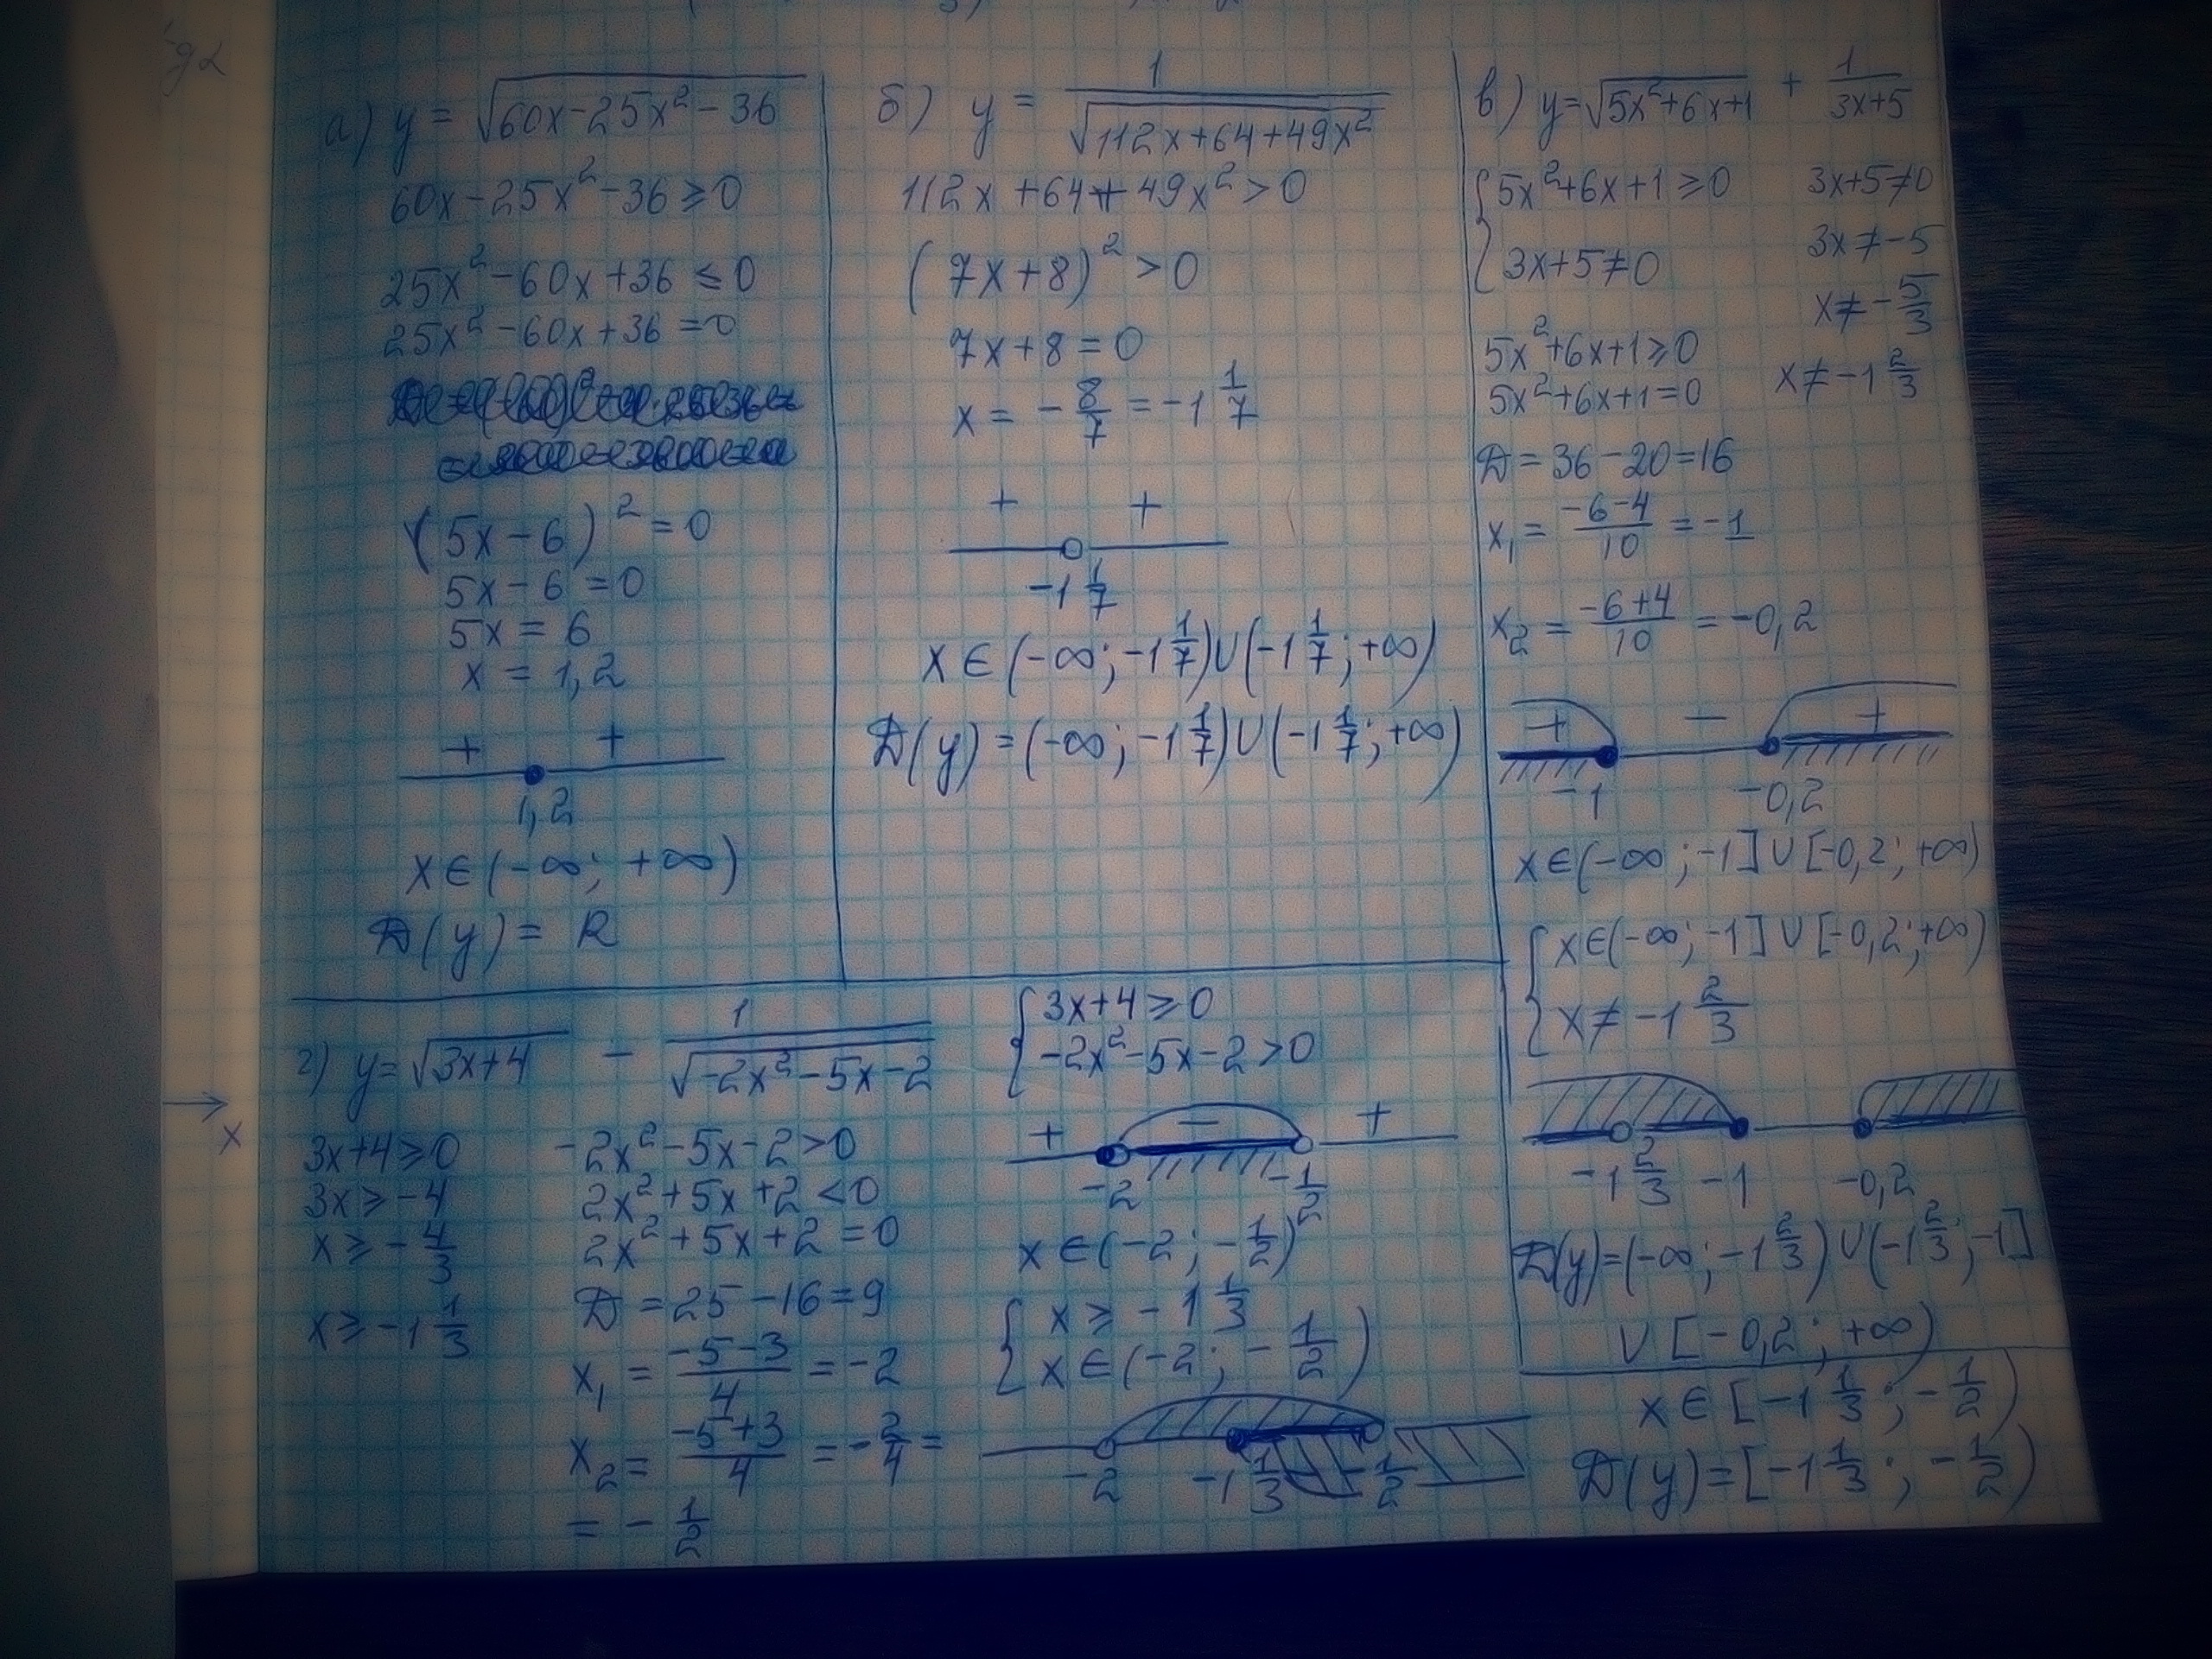 а) y = √(60x-25x²-36)
60x-25x²-36≥0
25x²-60x+36≤0
25x²-60x+36=0
(5x-6)²=0
5x-6=0
5x=6
x=1,2
+ +
1,2
x∈(-∞; +∞)
D(y)= R
б) y = 1/√(112x+64+49x²)
112x+64+49x²>0
(7x+8)²>0
7x+8=0
x = -8/7 = -1 1/7
+ +
-1 1/7
x∈(-∞; -1 1/7)∪(-1 1/7; +∞)
D(y)=(-∞; -1 1/7)∪(-1 1/7; +∞)
в) y=√(5x²+6x+1) + 1/(3x+5)
{5x²+6x+1≥0
{3x+5≠0
3x+5≠0
3x≠-5
x≠-5/3
x≠-1 2/3
5x²+6x+1≥0
5x²+6x+1=0
D=36-20=16
x₁= (-6-4)/10 = -1
x₂ = (-6+4)/10 = -0,2
+ - +
-1 -0,2
x∈(-∞; -1]∪[-0,2; +∞)
{x∈(-∞; -1]∪[-0,2; +∞)
{x≠-1 2/3
-1 2/3 -1 -0,2
D(y)=(-∞; -1 2/3)∪(-1 2/3; -1]
∪[-0,2; +∞)
г) y=√(3x+4) - 1/√(-2x²-5x-2)
3x+4≥0
3x≥-4
x≥-4/3
x≥-1 1/3
-2x²-5x-2>0
2x²+5x+2<0
2x²+5x+2=0
D=25-16=9
x₁ = (-5-3)/4 = -2
x₂ = (-5+3)/4 = -2/4 =
= -1/2
{3x+4≥0
{-2x²-5x-2>0
+ - +
-2 -1/2
x∈(-2; -1/2)
{x≥-1 1/3
{x∈(-2; -1/2)
-2 -1 1/3 -1/2
x∈[-1 1/3; -1/2)
D(y)=[-1 1/3; -1/2)
x